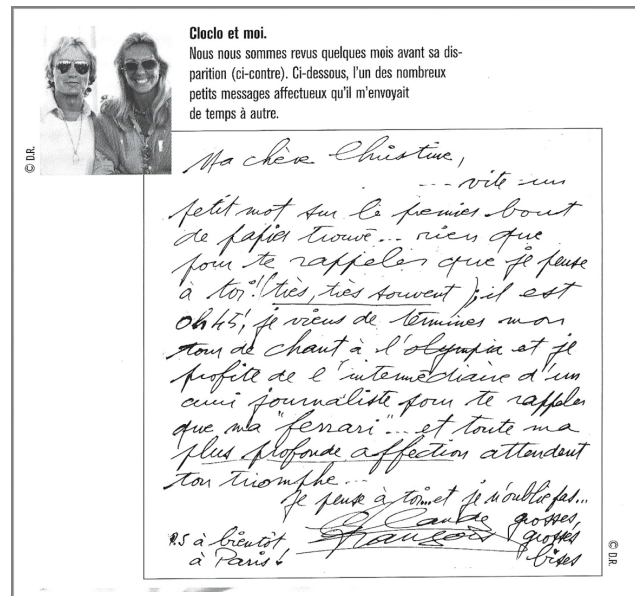 Cloclo et moi.
Nous nous sommes revus quelques mois avant sa dis-
parition (ci-contre). Ci-dessous, l'un des nombreux
petits messages affectueux qu'il m'envoyait
de temps à autre.
© D.R.
Ma chère Christine,
--- vite un
petit mot sur le premier bout
de papier trouvé... rien que
pour te rappeler que je pense
à toi! (très, très souvent); il est
0h45', je viens de terminer mon
tour de chant à l'olympia et je
profite de l'intermédiaire d'un
ami journaliste pour te rappeler
que ma "ferrari"... et toute ma
plus profonde affection attendent
ton triomphe...
je pense à toi...et je n'oublie pas...
Claude grosses,
François grosses
bises
P.S à bientôt
à Paris!
© D.R.